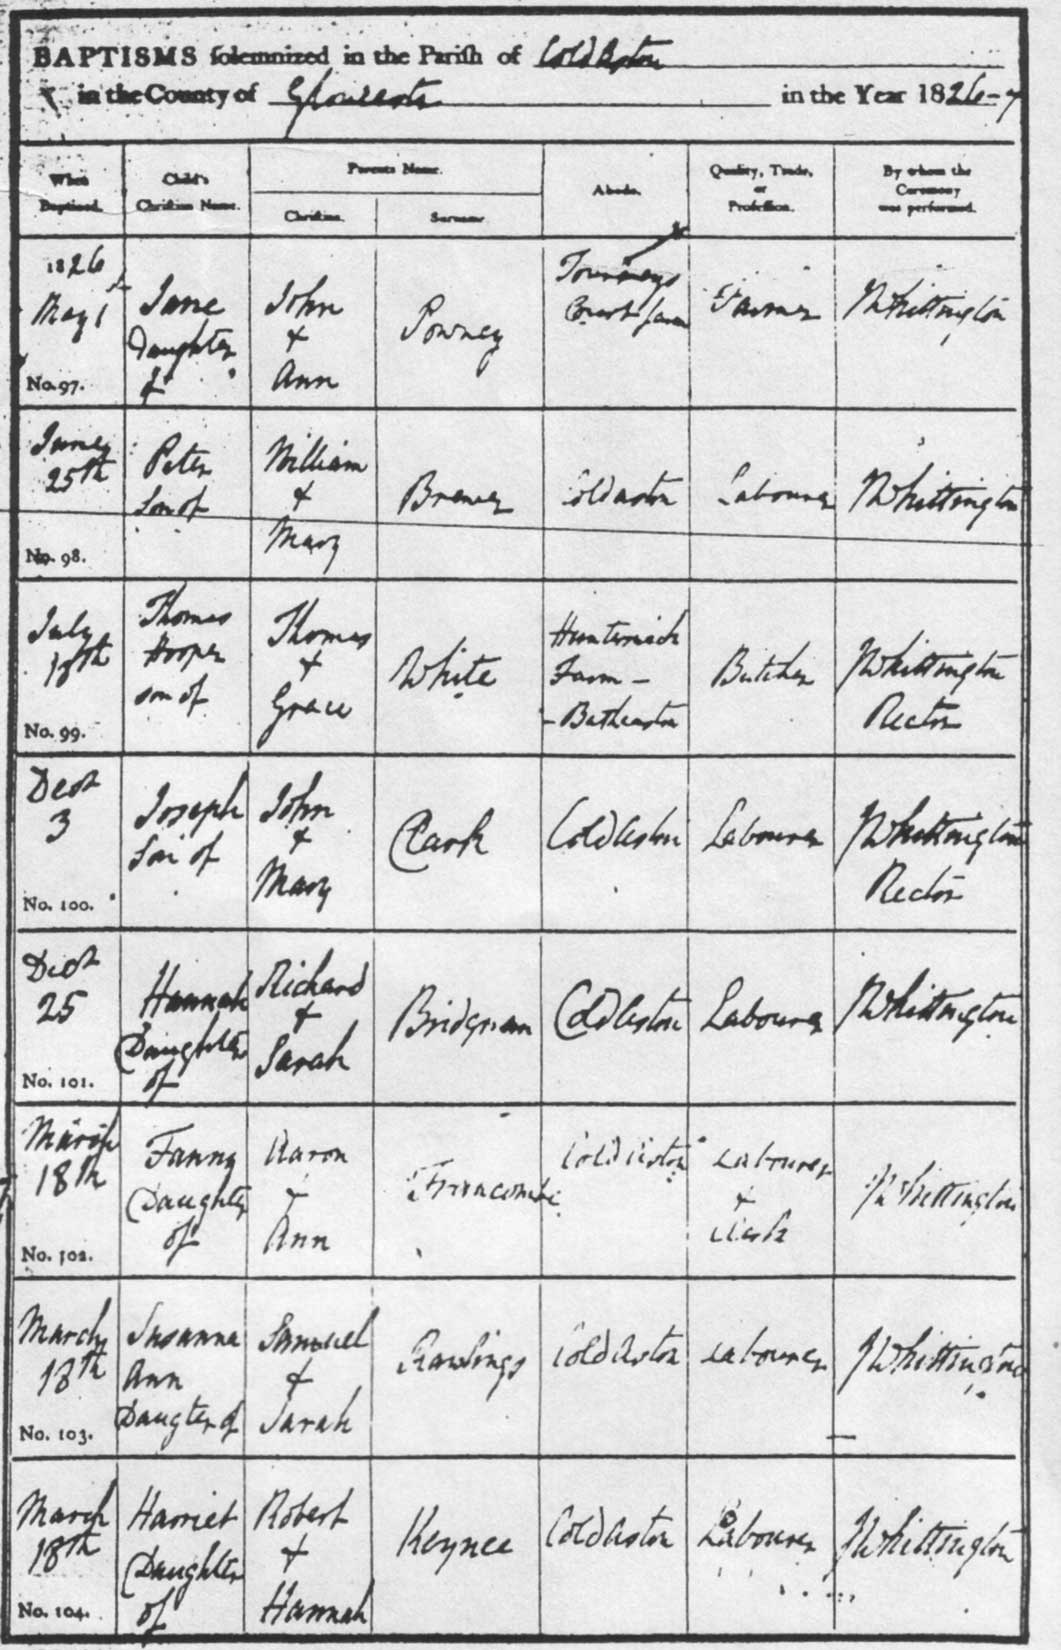 BAPTISMS solemnized in the Parish of Cold Aston
in the County of Gloucester in the Year 1826-7
When Baptized. Child's Christian Name. Parents Name. Christian. Surname. Abode. Quality, Trade, or Profession. By whom the Ceremony was performed.
1826
May 1st
No. 97.
Jane
Daughter
of
John
&
Ann
Powney
Court farm
Farmer
J Whittington
June
25th
No. 98.
Peter
Son of
William
&
Mary
Brewer
Cold aston
Labourer
J Whittington
July
No. 99.
Thomas
Hooper
son of
Thomas
&
Grace
White
Farm -
- Batheaston
Butcher
J Whittington
Rector
Decr
3
No. 100.
Joseph
Son of
John
&
Mary
Clark
Cold Aston
Labourer
J Whittington
Rector
Decr
25
No. 101.
Hannah
Daughter
of
Richard
&
Sarah
Bridgman
Cold Aston
Labourer
J Whittington
March
18th
No. 102.
Fanny
Daughter
of
Aaron
&
Ann
Francombe
Cold Aston
Labourer
&
Clerk
J Whittington
March
18th
No. 103.
Susanna
Ann
Daugter of
Samuel
&
Sarah
Rawlings
Cold Aston
Labourer
J Whittington
March
18th
No. 104.
Harriet
Daughter
of
Robert
&
Hannah
Keynee
Cold Aston
Labourer
J Whittington